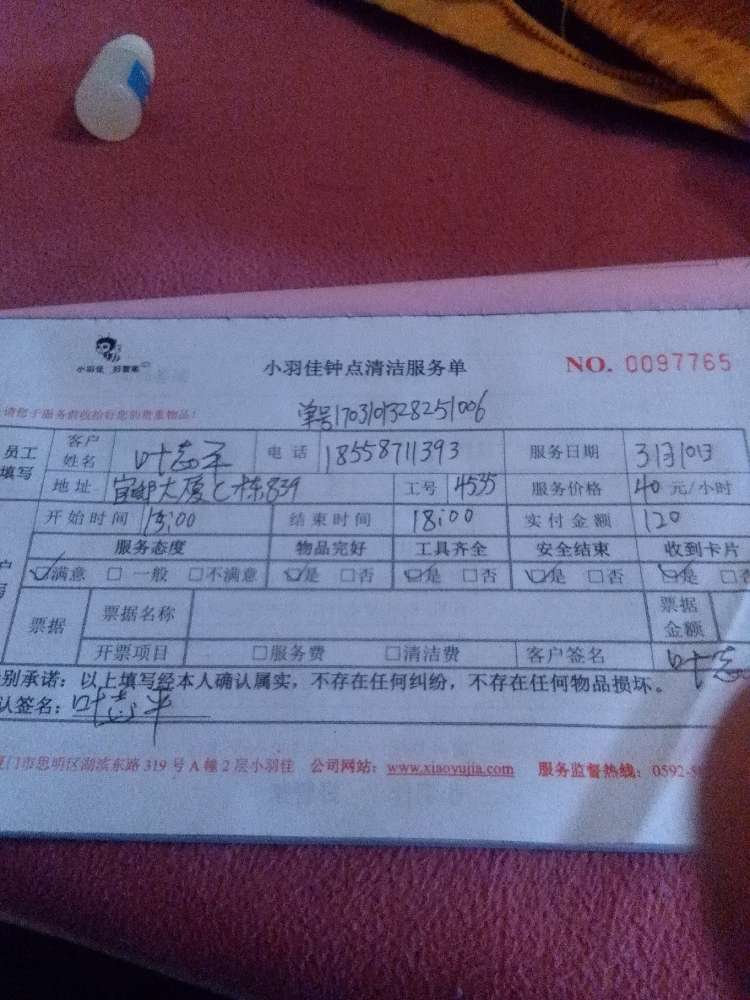 小羽佳 好管家
小羽佳钟点清洁服务单
NO. 0097765
请您于服务前收拾好您的贵重物品!
单号1703101328251006
员工填写 客户姓名 叶志平 电话 18558711393 服务日期 3月13日
地址 大厦C栋839 工号 4535 服务价格 40 元/小时
开始时间 15:00 结束时间 18:00 实付金额 120
服务态度 物品完好 工具齐全 安全结束 收到卡片
☑满意 □一般 □不满意 ☑是 □否 ☑是 □否 ☑是 □否 ☑是 □否
票据 票据名称 票据金额
开票项目 □服务费 □清洁费 客户签名 叶志
别承诺：以上填写经本人确认属实，不存在任何纠纷，不存在任何物品损坏。
认签名：叶志平
厦门市思明区湖滨东路 319 号 A 幢 2 层小羽佳 公司网站：www.xiaoyujia.com 服务监督热线：0592-5